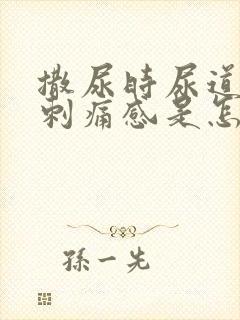 撒尿时尿道
刺痛感是怎
孫一先